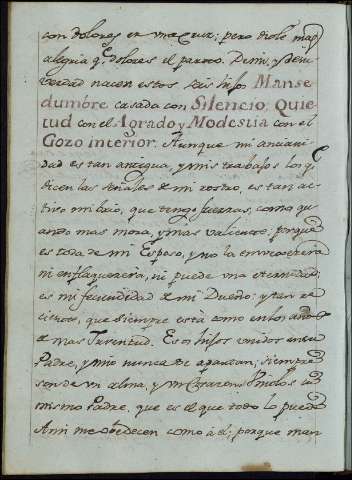 con dolores en una Cruz; pero diole mas
alegria q.e dolores el parto. De mi, y de su
verdad nacen estos seis hijos Manse
dumbre casada con Silencio; Quie
tud con el Agrado y Modestia con el
Gozo interior. Aunque mi anciani
dad es tan antigua, y mis trabajos los q.e
dicen las señales de mi rostro, es tan ac
tivo mi brio, que tengo fuerzas, como qu
ando mas moza, y mas valiente; porque
es toda de mi Esposo, y no la envejeciera
ni enflaqueciera, ni puede una eternidad;
es mi fecundidad de mi Dueño: y tan re
cientes, que siempre está como en los años
de mas Juventud. Esos hijos unidos en su
Padre, y mio nunca se apartan; siempre
son de un alma, y un Corazon. Diolos un
mismo Padre, que es el que todo lo puede
A mi me obedecen como á él; porque man